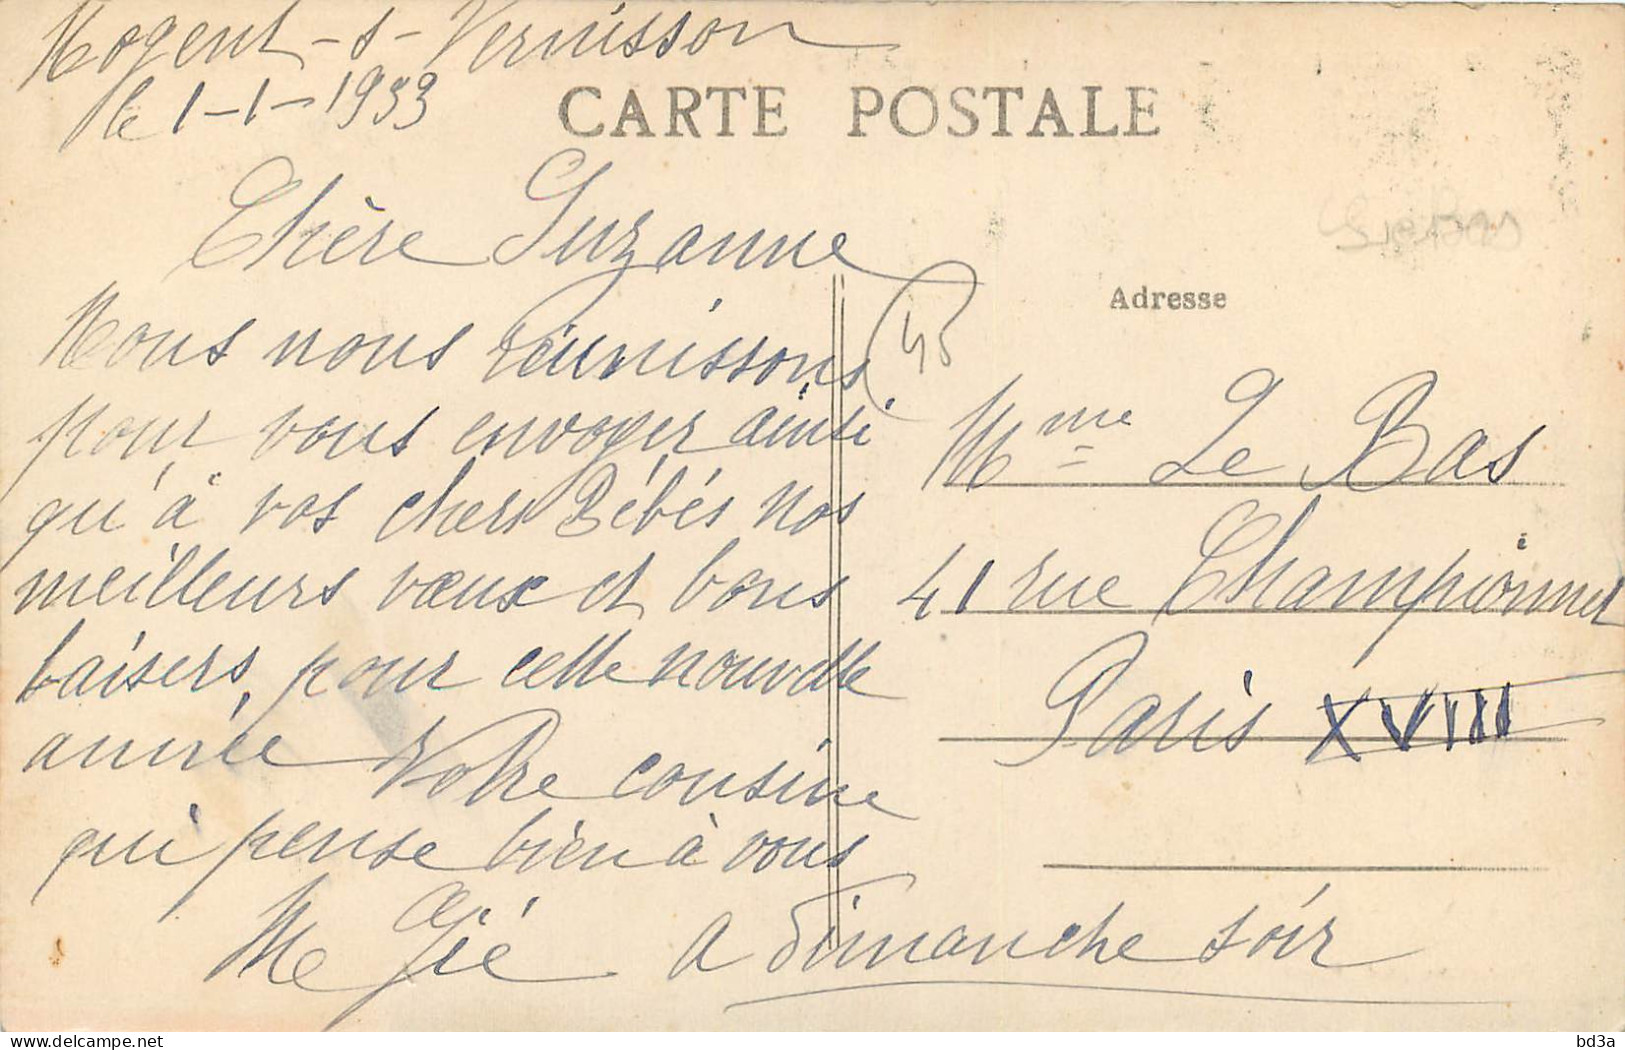 Nogent-s-Vernisson
le 1-1-1933
CARTE POSTALE
Chère Suzanne
Nous nous réunissons
pour vous envoyer ainsi
qu'à vos chers Bébés nos
meilleurs vœux et bons
baisers, pour cette nouvelle
année Votre cousine
qui pense bien à vous
Me Gié a dimanche soir
45
Le Bas
Adresse
Mme Le Bas
41 rue Championnet
Paris XVIII
delcampe.net
bd3a